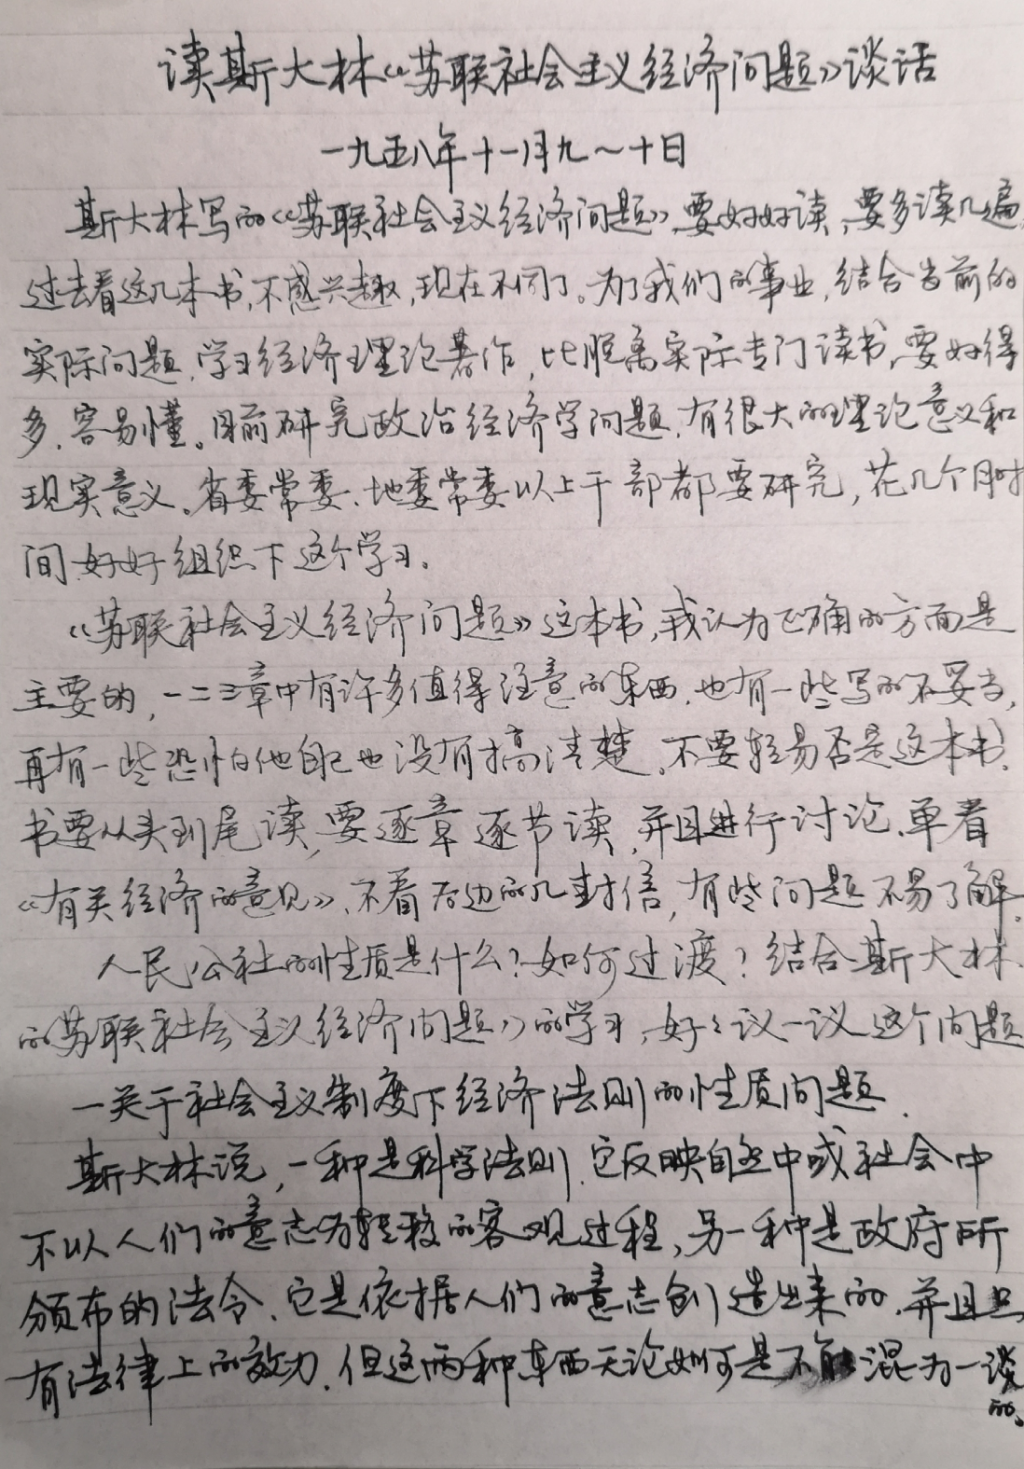 读斯大林《苏联社会主义经济问题》谈话
一九五八年十一月九～十日
斯大林写的《苏联社会主义经济问题》,要好好读,要多读几遍,
过去看这几本书,不感兴趣,现在不同了。为了我们的事业,结合当前的
实际问题,学习经济理论著作,比脱离实际专门读书,要好得
多,容易懂。目前研究政治经济学问题,有很大的理论意义和
现实意义。省委常委、地委常委以上干部都要研究,花几个月时
间,好好组织下这个学习。
《苏联社会主义经济问题》这本书,我认为正确的方面是
主要的,一二三章中有许多值得注意的东西,也有一些写的不妥当,
再有一些恐怕他自己也没有搞清楚。不要轻易否定这本书。
书要从头到尾读,要逐章逐节读,并且进行讨论。单看
《有关经济的意见》,不看后边的几封信,有些问题不易了解。
人民公社的性质是什么?如何过渡?结合斯大林
的《苏联社会主义经济问题》的学习,好々议一议这个问题
一关于社会主义制度下经济法则的性质问题.
斯大林说,一种是科学法则,它反映自然中或社会中
不以人们的意志为转移的客观过程,另一种是政府所
颁布的法令,它是依据人们的意志创造出来的,并且只
有法律上的效力.但这两种东西无论如何是不能混为一谈
的。